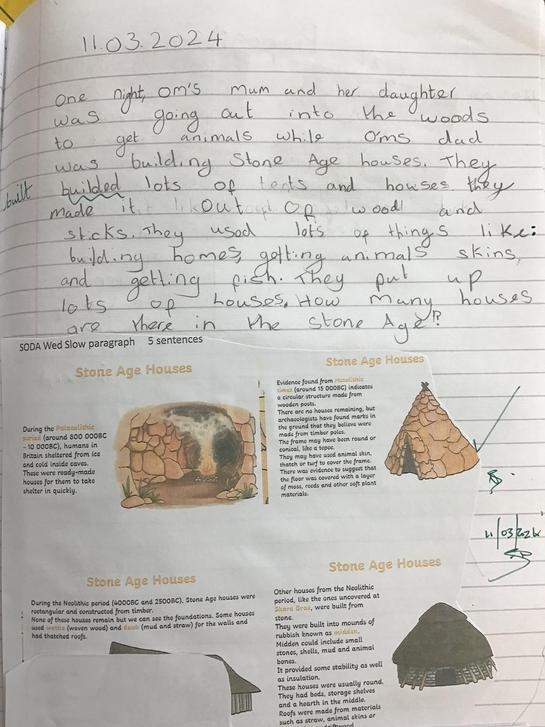 11.03.2024
One night, Om's mum and her daughter
was going out into the woods
to get animals while Om's dad
was building Stone Age houses. They
built
builded lots of tents and houses they
made it out of wood and
sticks. They used lots of things like:
building homes, getting animals skins,
and getting fish. They put up
lots of houses. How many houses
are there in the Stone Age!?
SODA Wed Slow paragraph 5 sentences
Stone Age Houses
During the Palaeolithic
period (around 800 000BC
- 10 000BC), humans in
Britain sheltered from ice
and cold inside caves.
These were ready-made
houses for them to take
shelter in quickly.
Stone Age Houses
Evidence found from Mesolithic
times (around 15 000BC) indicates
a circular structure made from
wooden posts.
There are no houses remaining, but
archaeologists have found marks in
the ground that they believe were
made from timber poles.
The frame may have been round or
conical, like a tepee.
They may have used animal skin,
thatch or turf to cover the frame.
There was evidence to suggest that
the floor was covered with a layer
of moss, reeds and other soft plant
materials.
11/03/2024
Stone Age Houses
During the Neolithic period (4000BC and 2500BC), Stone Age houses were
rectangular and constructed from timber.
None of these houses remain but we can see the foundations. Some houses
used wattle (woven wood) and daub (mud and straw) for the walls and
had thatched roofs.
Stone Age Houses
Other houses from the Neolithic
period, like the ones uncovered at
Skara Brae, were built from
stone.
They were built into mounds of
rubbish known as midden.
Midden could include small
stones, shells, mud and animal
bones.
It provided some stability as well
as insulation.
These houses were usually round.
They had beds, storage shelves
and a hearth in the middle.
Roofs were made from materials
such as straw, animal skins or
driftwood